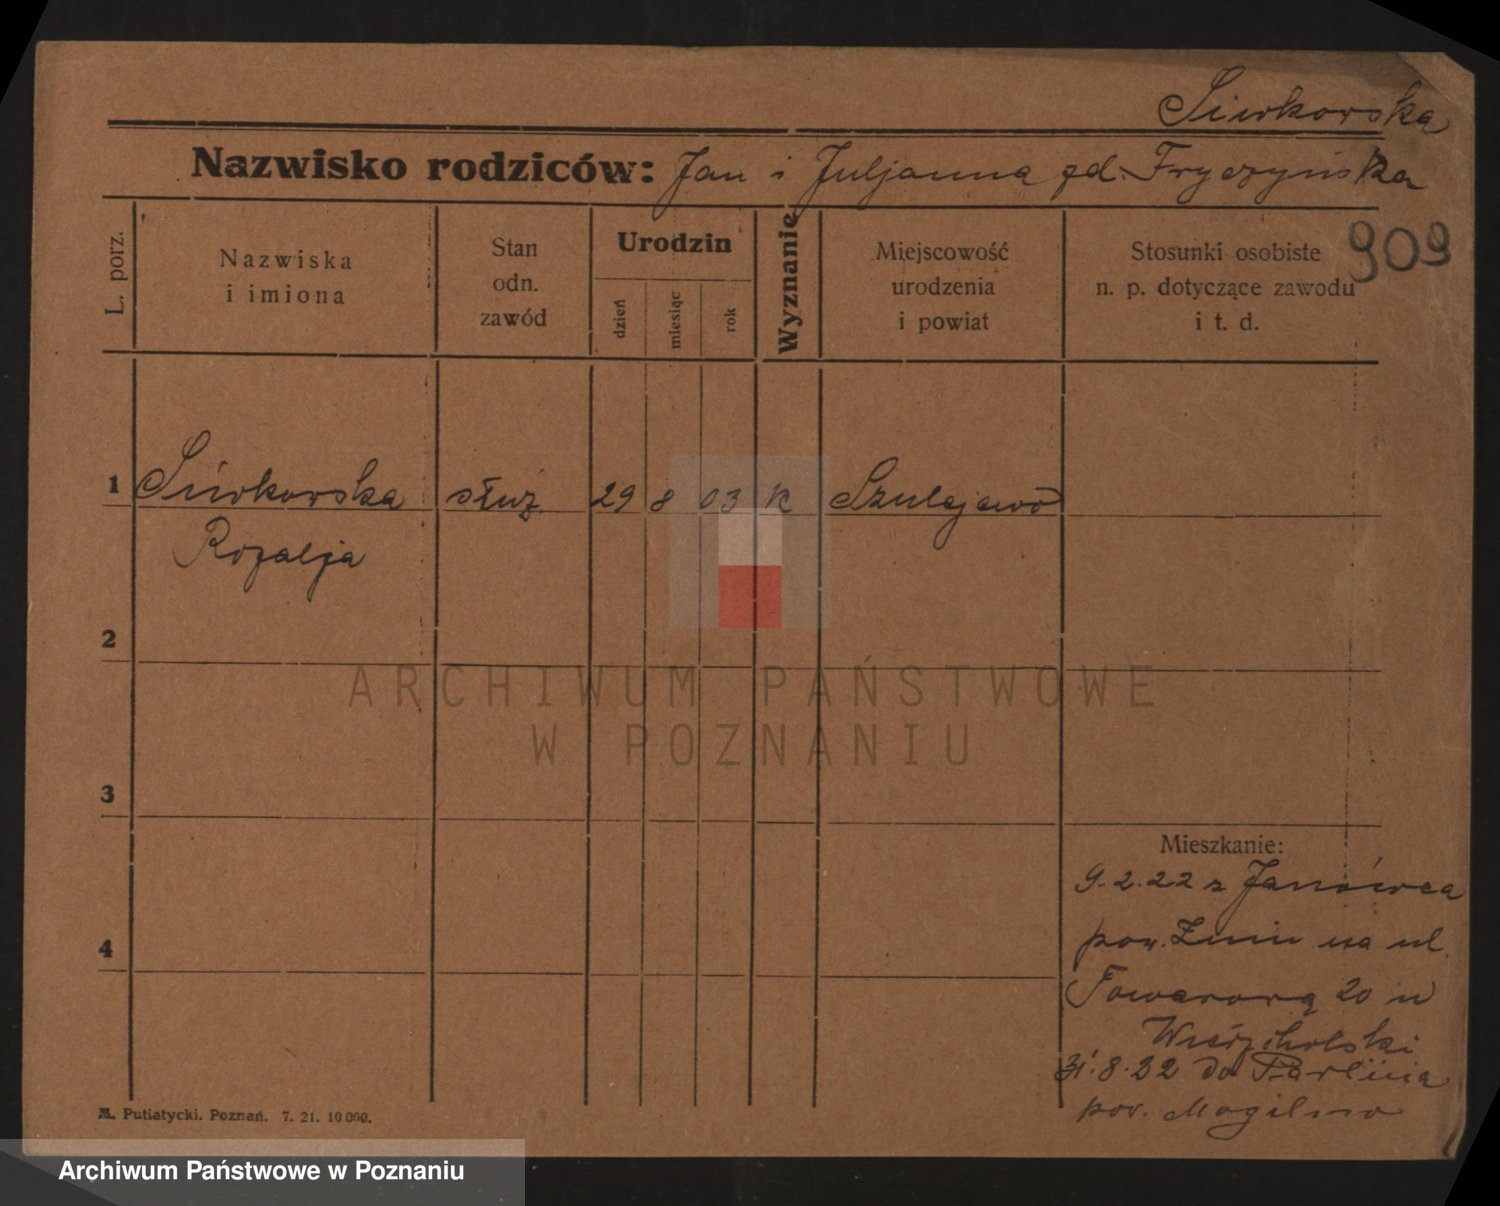 Siwkowska
Nazwisko rodziców: Jan i Juljanna zd. Fryczyńska
909
L. porz.
Nazwiska
i imiona
Stan
odn.
zawód
Urodzin
dzień
miesiąc
rok
Wyznanie
Miejscowość
urodzenia
i powiat
Stosunki osobiste
n. p. dotyczące zawodu
i t. d.
1 Siwkowska służ 29 8 03 K Szulejewo
Rozalja
2
3
4
Mieszkanie:
9.2.22 z Janówca
pow. Żnin na ul.
Towarową 20 u
31.8.22 do Parlina
pow. Mogilno
M. Putiatycki. Poznań. 7. 21. 10 000.
ARCHIWUM PAŃSTWOWE
W POZNANIU
Archiwum Państwowe w Poznaniu